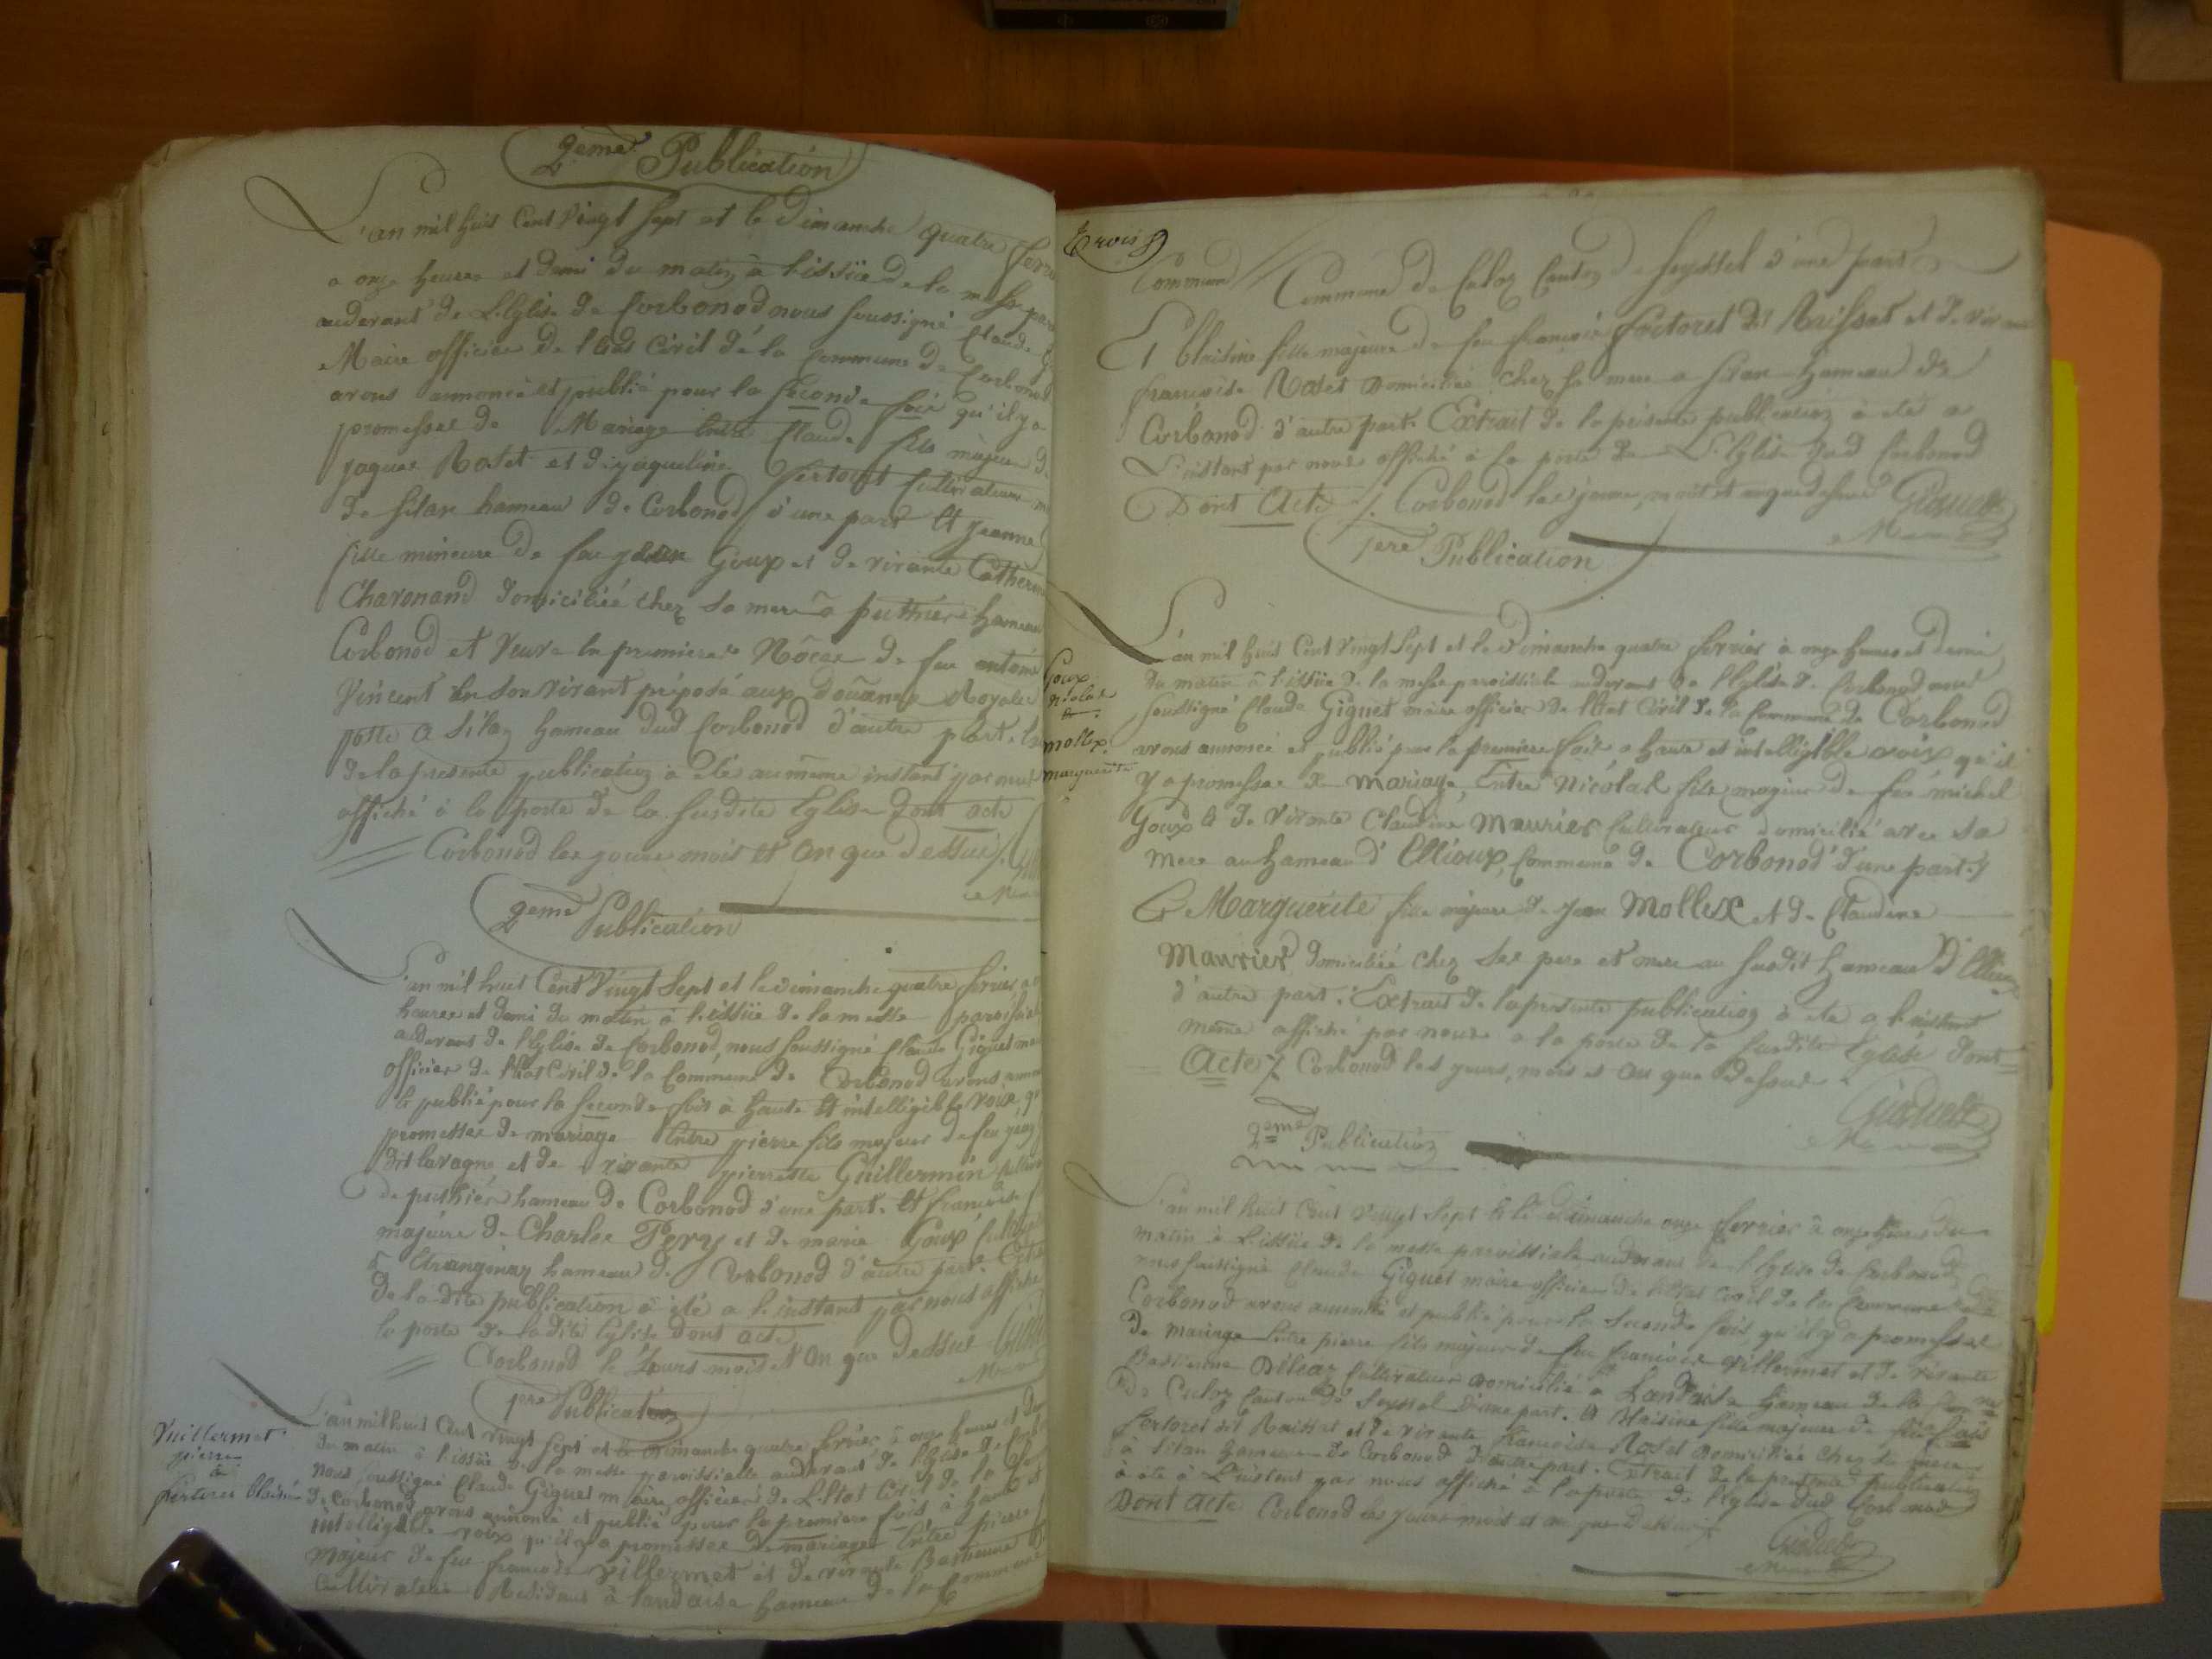 2eme Publication
L'an mil huit Cent Vingt Sept et le Dimanche quatre
a onze heures et demi du matin à l'issüe de la messe
audevant de L'Eglise de Corbonod nous soussigné Claude
Maire officier de l'état Civil de la Commune de Corbonod
avons annoncé et publié pour la seconde fois qu'il y a
promesses de Mariage Entre Claude fils majeur d
jaques Rotet et de jaqueline Fertoret Cultivateur
de silan hameau de Corbonod d'une part Et jeanne
fille mineure de feu Goux et de vivante Catherin
Charonand Domiciliée chez sa mere à puthier hameau
Corbonod et Veuve En premieres Nôces de feu antoine
Vincent En son vivant préposé aux Doüanes Royales
poste a Silan hameau dud Corbonod d'autre part.
de la presente publication à été au même instant par nous
affiché à la porte de la susdite Eglise Dont acte
Corbonod les jours mois et an que dessus
2eme Publication
L'an mil huit Cent Vingt Sept et le dimanche quatre fevrier a
heures et demi du matin à l'issüe de la messe paroissiale
audevant de l'Eglise de Corbonod, nous soussigné Claude Giguet
officier de l'état Civil de la Commune de Corbonod avons
Et publié pour la seconde fois à haute Et intelligible voix,
promesses de mariage Entre pierre fils majeur de feu
dit lavagne et de vivante pierrette Guillermin
de puthier hameau de Corbonod d'une part. Et françoise
majeure de Charles Pery et de marie Goux
d'Etranginaz hameau de Corbonod d'autre part.
de la dite publication à été a l'instant par nous affiché
la porte de la dite Eglise dont acte
Corbonod le jours mois et an que dessus
1ere Publication
Vuillermet
pierre
&
fertoret blaisine
L'an mil huit Cent vingt sept et le Dimanche quatre fevrier à onze heures et
du matin à l'issüe de la messe paroissialle audevant de l'Eglise de
nous soussigné Claude Giguet maire officier de L'Etat Civil de la
de corbonod avons annoncé et publié pour la premiere fois à haute et
intelligible voix qu'il y a promesses de mariage Entre pierre
majeur de feu francois villermet et de vivante Bastienne
Cultivateur Residant à landaise hameau de la Commune
trois
Commune
Commune de Culoz Canton de Seyssel d'une part
Et blaisine fille majeure de feu françois fertoret dit Raissat et de vivante
françoise Rotet Domiciliée chez sa mere a silan hameau de
Corbonod d'autre part. Extrait de la présente publication à été a
L'instant par nous affiché à la porte de L'Eglise dud Corbonod
Dont Acte Corbonod les jours, mois et an que dessus Giguet
1ere Publication
Goux
nicolas
&
mollex
marguerite
L'an mil huit Cent Vingt Sept et le Dimanche quatre fevrier à onze heures et demi
du matin à l'issüe de la messe paroissiale audevant de l'Eglise de Corbonod nous
soussigné Claude Giguet maire officier de l'Etat Civil de la Commune de Corbonod
avons annoncé et publié pour la premiere fois a haute et intelligible voix qu'il
y a promesses de mariage, Entre Nicolas fils majeur de feu michel
Goux & de vivante Claudine Maurier Cultivateur domicilié avec sa
mere au hameau d'Ellioux, Commune de Corbonod d'une part.
Et Marguerite fille majeure de jean Mollex et de Claudine
Maurier domiciliée chez ses pere et mere au susdit hameau d'Ellioux
d'autre part. Extrait de la presente publication à été a l'instant
même affiché par nous a la porte de la susdite Eglise Dont
Acte Corbonod les jours, mois et an que Dessus
Giguet
2eme Publication
L'an mil huit Cent vingt sept & le Dimanche onze fevrier à onze heures du
matin à L'issüe de la messe paroissiale audevant de l'Eglise de Corbonod,
nous soussigné Claude Giguet maire officier de l'Etat Civil de la Commune de
Corbonod avons annoncé et publié pour la seconde fois, qu'il y a promesses
de mariage Entre pierre fils majeur de feu francois villermet et de vivante
Bastienne Cultivateur Domicilié a Landaise hameau de la Commune
de Culoz Canton de Seyssel d'une part. Et Blaisine fille majeure de feu
fertoret dit Raissat et de vivante françoise Rotet Domiciliée chez sa mere
à silan hameau de Corbonod d'autre part. Extrait de la presente publication
à été à L'instant par nous affiché à la porte de l'Eglise dud Corbonod
Dont Acte Corbonod les jours mois et an que dessus
Giguet